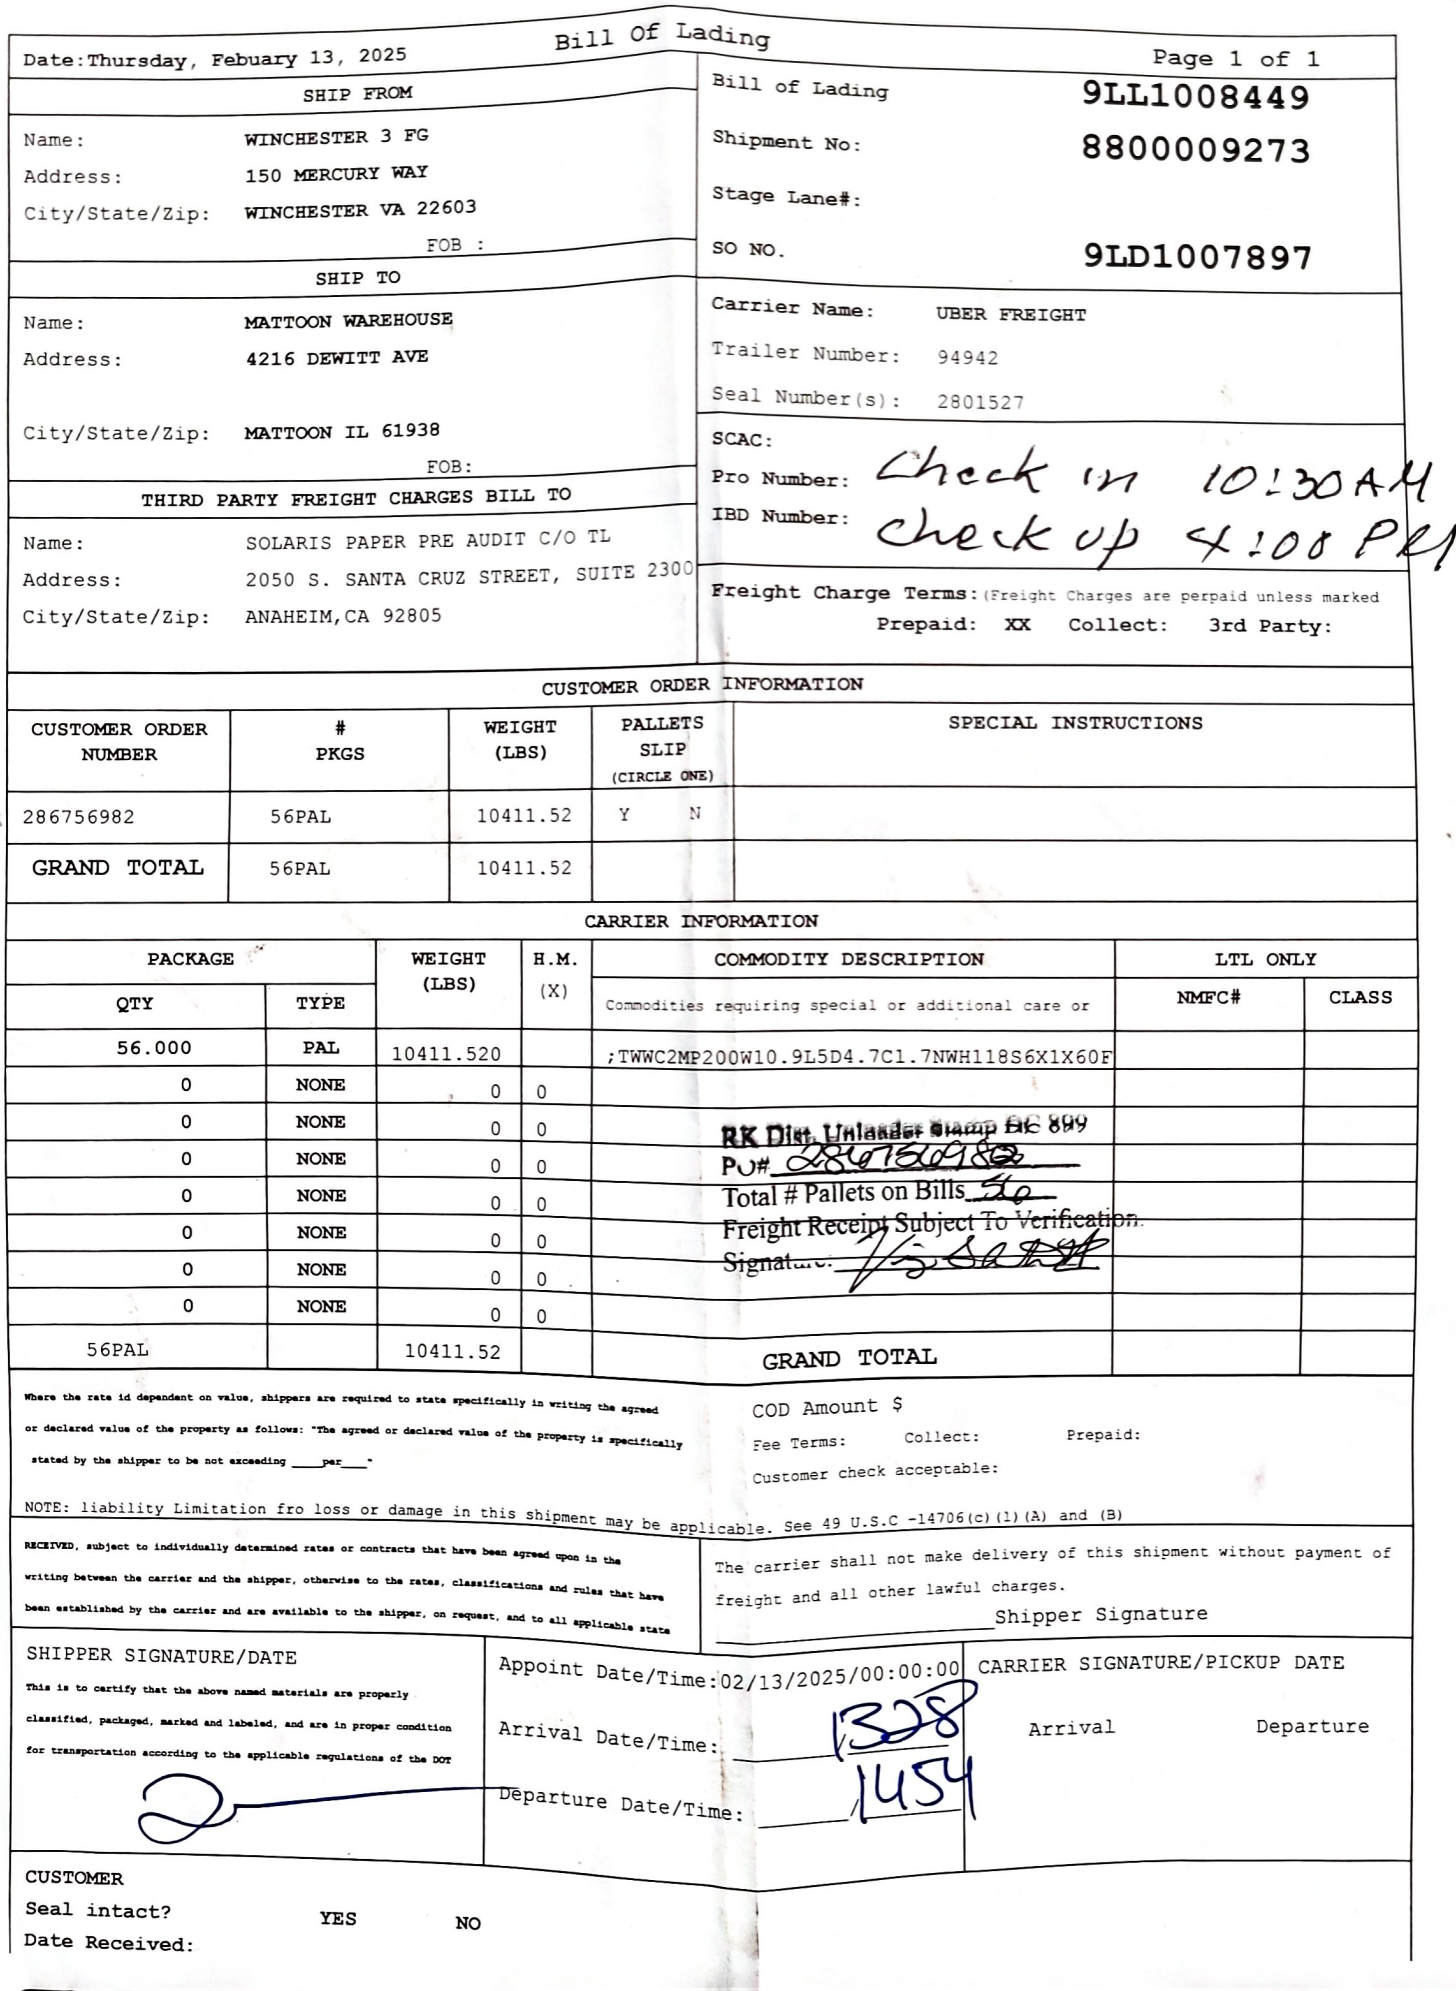 Bill Of Lading
Date:Thursday, Febuary 13, 2025
Page 1 of 1
SHIP FROM
Name: WINCHESTER 3 FG
Address: 150 MERCURY WAY
City/State/Zip: WINCHESTER VA 22603
FOB :
Bill of Lading 9LL1008449
Shipment No: 8800009273
Stage Lane#:
SO NO. 9LD1007897
SHIP TO
Name: MATTOON WAREHOUSE
Address: 4216 DEWITT AVE
City/State/Zip: MATTOON IL 61938
FOB:
Carrier Name: UBER FREIGHT
Trailer Number: 94942
Seal Number(s): 2801527
SCAC:
Pro Number:
IBD Number:
Check in 10:30AM
Check up 4:00 PM
THIRD PARTY FREIGHT CHARGES BILL TO
Name: SOLARIS PAPER PRE AUDIT C/O TL
Address: 2050 S. SANTA CRUZ STREET, SUITE 2300
City/State/Zip: ANAHEIM,CA 92805
Freight Charge Terms:(Freight Charges are perpaid unless marked
Prepaid: XX Collect: 3rd Party:
CUSTOMER ORDER INFORMATION
CUSTOMER ORDER NUMBER # PKGS WEIGHT (LBS) PALLETS SLIP (CIRCLE ONE) SPECIAL INSTRUCTIONS
286756982 56PAL 10411.52 Y N
GRAND TOTAL 56PAL 10411.52
CARRIER INFORMATION
PACKAGE WEIGHT (LBS) H.M. (X) COMMODITY DESCRIPTION LTL ONLY
QTY TYPE Commodities requiring special or additional care or NMFC# CLASS
56.000 PAL 10411.520 ;TWWC2MP200W10.9L5D4.7C1.7NWH118S6X1X60F
0 NONE 0 0
0 NONE 0 0
0 NONE 0 0
0 NONE 0 0
0 NONE 0 0
0 NONE 0 0
0 NONE 0 0
RK Dist. Unloader Stamp DC 899
PO# 286756982
Total # Pallets on Bills 56
Freight Receipt Subject To Verification.
Signature:
56PAL 10411.52 GRAND TOTAL
Where the rate id dependant on value, shippers are required to state specifically in writing the agreed
or declared value of the property as follows: "The agreed or declared value of the property is specifically
stated by the shipper to be not exceeding ____per___"
COD Amount $
Fee Terms: Collect: Prepaid:
Customer check acceptable:
NOTE: liability Limitation fro loss or damage in this shipment may be applicable. See 49 U.S.C -14706(c)(1)(A) and (B)
RECEIVED, subject to individually determined rates or contracts that have been agreed upon in the
writing between the carrier and the shipper, otherwise to the rates, classifications and rules that have
been established by the carrier and are available to the shipper, on request, and to all applicable state
The carrier shall not make delivery of this shipment without payment of
freight and all other lawful charges.
Shipper Signature
SHIPPER SIGNATURE/DATE
This is to certify that the above named materials are properly
classified, packaged, marked and labeled, and are in proper condition
for transportation according to the applicable regulations of the DOT
Appoint Date/Time:02/13/2025/00:00:00
Arrival Date/Time: / 1328
Departure Date/Time: / 1454
CARRIER SIGNATURE/PICKUP DATE
Arrival Departure
CUSTOMER
Seal intact? YES NO
Date Received: